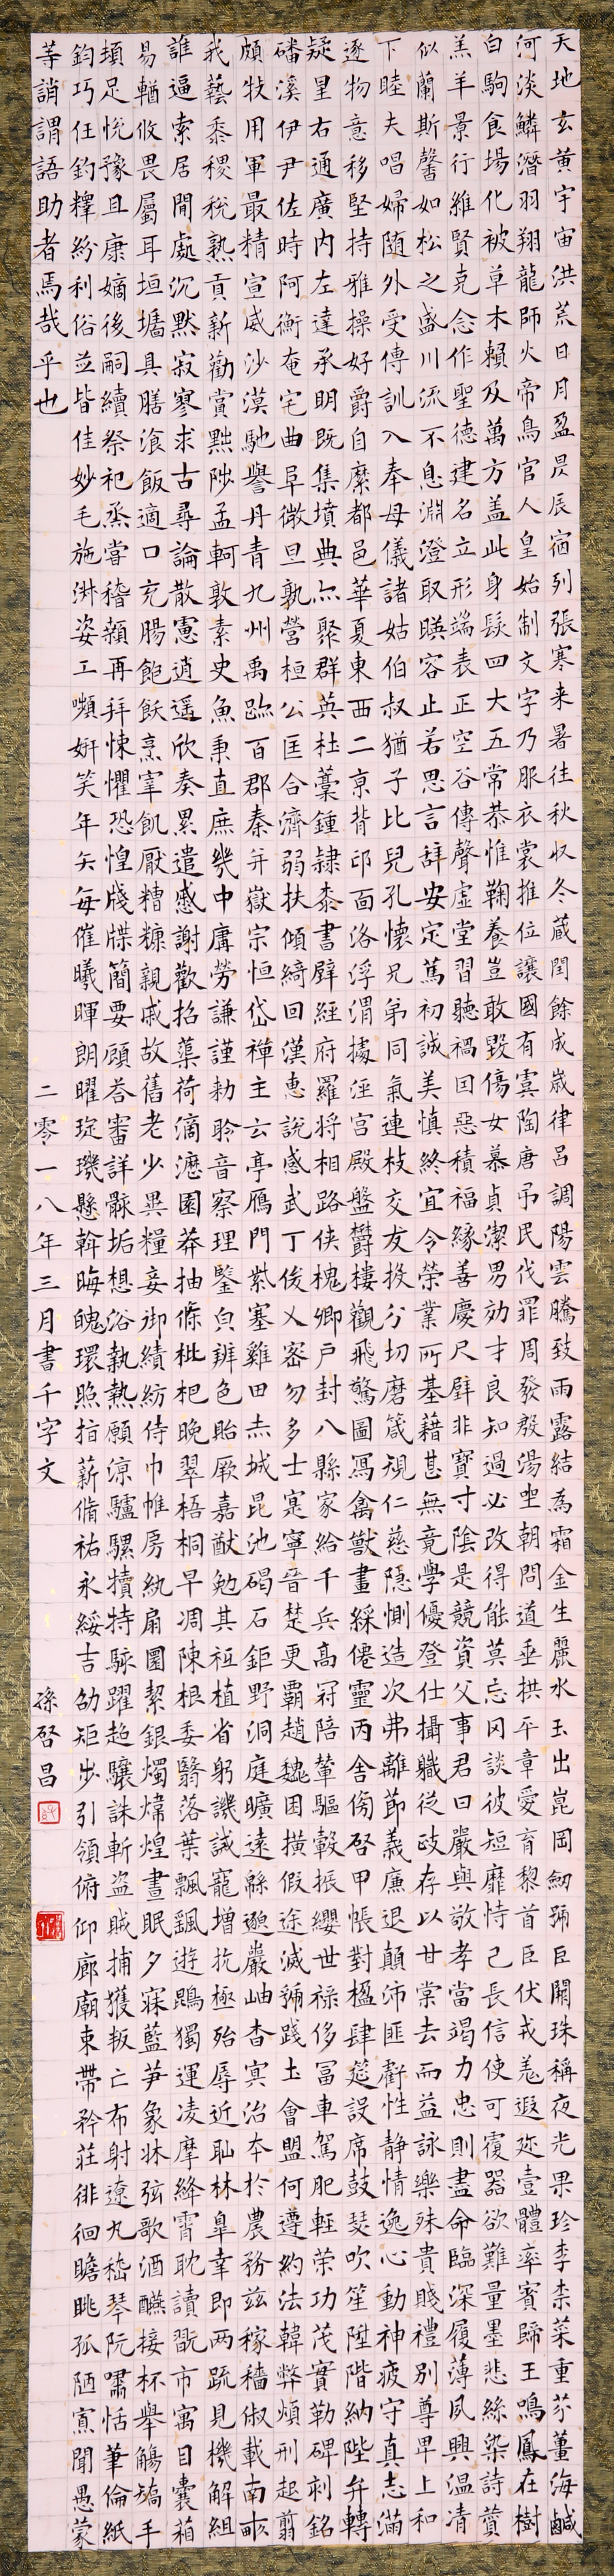 天地玄黃宇宙洪荒日月盈昃辰宿列張寒来暑往秋收冬蔵閏餘成歲律呂調陽雲騰致雨露結為霜金生麗水玉出崑岡劒號巨闕珠稱夜光果珍李柰菜重芥薑海鹹
河淡鱗潛羽翔龍師火帝鳥官人皇始制文字乃服衣裳推位讓國有虞陶唐弔民伐罪周發殷湯坐朝問道垂拱平章愛育黎首臣伏戎羌遐邇壹體率賓歸王鳴鳳在樹
白駒食場化被草木賴及萬方蓋此身髮四大五常恭惟鞠養豈敢毀傷女慕貞潔男効才良知過必改得能莫忘罔談彼短靡恃己長信使可覆器欲難量墨悲絲染詩讚
羔羊景行維賢克念作聖德建名立形端表正空谷傳聲虛堂習聽禍因惡積福緣善慶尺璧非寶寸陰是競資父事君曰嚴與敬孝當竭力忠則盡命臨深履薄夙興溫凊
似蘭斯馨如松之盛川流不息淵澄取暎容止若思言辭安定篤初誠美慎終宜令榮業所基藉甚無竟學優登仕攝職從政存以甘棠去而益詠樂殊貴賤禮別尊卑上和
下睦夫唱婦随外受傅訓入奉母儀諸姑伯叔猶子比兒孔懷兄弟同氣連枝交友投分切磨箴規仁慈隱惻造次弗離節義廉退顛沛匪虧性静情逸心動神疲守真志滿
逐物意移堅持雅操好爵自縻都邑華夏東西二京背邙面洛浮渭據涇宮殿盤鬱樓觀飛驚圖寫禽獸畫綵僊靈丙舍傍啓甲帳對楹肆筵設席鼓瑟吹笙陞階納陛弁轉
疑星右通廣内左達承明既集墳典亦聚群英杜藁鍾隸漆書壁經府羅将相路俠槐卿戶封八縣家給千兵高冠陪輦驅轂振纓世祿侈富車駕肥輕策功茂實勒碑刻銘
磻溪伊尹佐時阿衡奄宅曲阜微旦孰營桓公匡合濟弱扶傾綺回漢惠說感武丁俊乂密勿多士寔寧晉楚更霸趙魏困橫假途滅虢踐土會盟何遵約法韓弊煩刑起翦
頗牧用軍最精宣威沙漠馳譽丹青九州禹跡百郡秦并嶽宗恒岱禪主云亭鴈門紫塞雞田赤城昆池碣石鉅野洞庭曠遠緜邈巖岫杳冥治本於農務兹稼穡俶載南畝
我藝黍稷稅熟貢新勸賞黜陟孟軻敦素史魚秉直庶幾中庸勞謙謹勑聆音察理鑒皃辨色貽厥嘉猷勉其祗植省躬譏誡寵增抗極殆辱近恥林皋幸即两疏見機解組
誰逼索居閒處沉默寂寥求古尋論散慮逍遥欣奏累遣慼謝歡招蕖荷滴瀝園莽抽條枇杷晚翠梧桐早凋陳根委翳落葉飄颻遊鵾獨運凌摩絳霄耽讀翫市寓目囊箱
易輶攸畏屬耳垣墻具膳飡飯適口充腸飽飫烹宰飢厭糟糠親戚故舊老少異糧妾御績紡侍巾帷房紈扇圓絜銀燭煒煌晝眠夕寐藍笋象牀弦歌酒醼接杯舉觴矯手
頓足悅豫且康嫡後嗣續祭祀烝嘗稽顙再拜悚懼恐惶牋牒簡要顧答審詳骸垢想浴執熱願涼驢騾犢特駭躍超驤誅斬盜賊捕獲叛亡布射遼丸嵇琴阮嘯恬筆倫紙
鈞巧任釣釋紛利俗並皆佳妙毛施淑姿工嚬妍笑年矢每催曦暉朗曜琁璣懸斡晦魄環照指薪脩祜永綏吉劭矩步引領俯仰廊廟束帶矜莊徘徊瞻眺孤陋寡聞愚蒙
等誚謂語助者焉哉乎也
二零一八年三月書千字文
孫啓昌